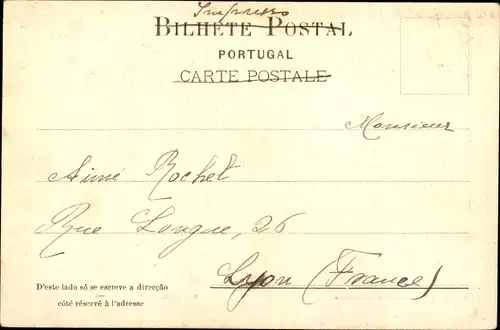 Impresso
BILHETE POSTAL
PORTUGAL
CARTE POSTALE
Monsieur
Aimé Rochet
Rue Longue, 26
Lyon (France)
D'este lado só se escreve a direcção
côté réservé à l'adresse